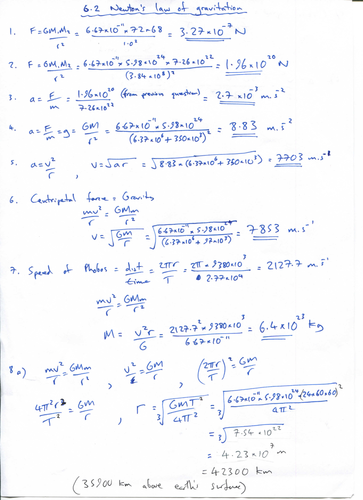 6.2 Newton's law of gravitation
1. F = GM₁M₂/r² = 6.67x10⁻¹¹ x 72 x 68/1.0² = 3.27x10⁻⁷ N
2. F = GM₁M₂/r² = 6.67x10⁻¹¹ x 5.98x10²⁴ x 7.26x10²²/(3.84x10⁸)² = 1.96x10²⁰ N
3. a = F/m = 1.96x10²⁰ (from previous question)/7.26x10²² = 2.7x10⁻³ m.s⁻²
4. a = F/m = g = GM/r² = 6.67x10⁻¹¹ x 5.98x10²⁴/(6.37x10⁶ + 350x10³)² = 8.83 m.s⁻²
5. a = v²/r , v = √ar = √8.83 x (6.37x10⁶ + 350x10³) = 7703 m.s⁻¹
6. Centripetal force = Gravity
mv²/r = GMm/r²
v = √GM/r = √6.67x10⁻¹¹ x 5.98x10²⁴/(6.37x10⁶ + 97x10³) = 7853 m.s⁻¹
7. Speed of Phobos = dist/time = 2πr/T = 2π x 9380x10³/2.77x10⁴ = 2127.7 m.s⁻¹
mv²/r = GMm/r²
M = v²r/G = 2127.7² x 9380x10³/6.67x10⁻¹¹ = 6.4x10²³ kg
8 a) mv²/r = GMm/r² , v² = GM/r , (2πr/T)² = GM/r
4π²r²/T² = GM/r , r = ³√GMT²/4π² = ³√6.67x10⁻¹¹ x 5.98x10²⁴ x (24x60x60)²/4π²
= ³√7.54x10²²
= 4.23x10⁷ m
= 42300 km
(35900 km above earth's surface)